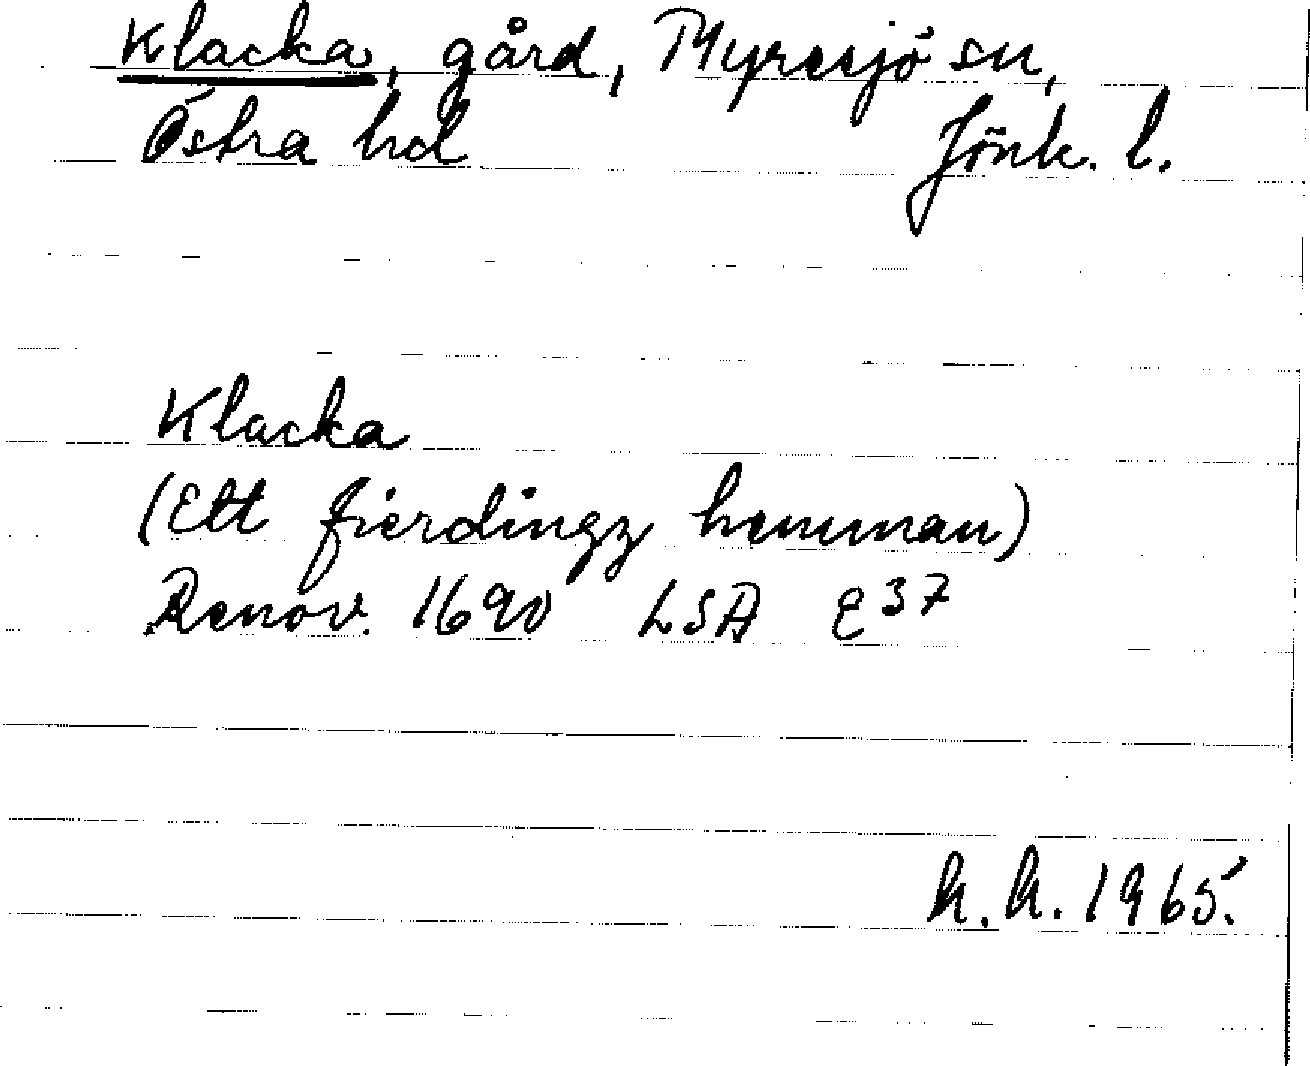 Klacka, gård, Myresjö sn,
Östra hd Jönk. l.
Klacka
(Ett fierdingz hemman)
Renov. 1690 LSA E37
h. h. 1965.